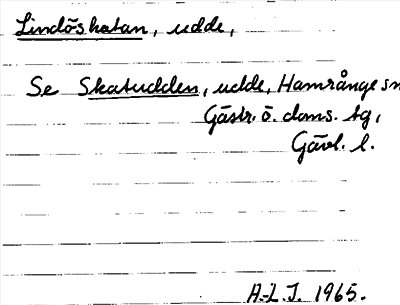 Lindöskatan, udde,
Se Skatudden, udde, Hamrånge sn
Gästr. ö. doms. tg,
Gävl. l.
A.-L.J. 1965.